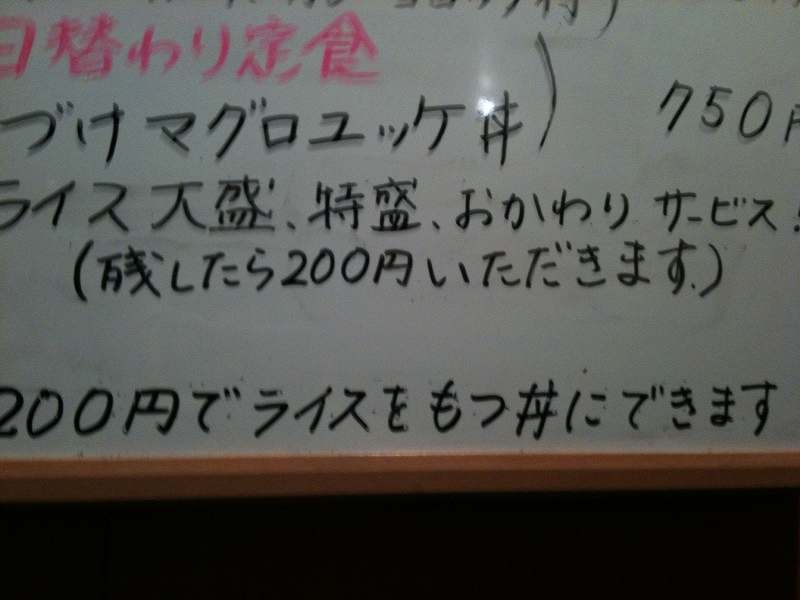 日替わり定食
づけマグロユッケ丼) 750円
ライス大盛、特盛、おかわりサービス!
(残したら200円いただきます。)
200円でライスをもつ丼にできます